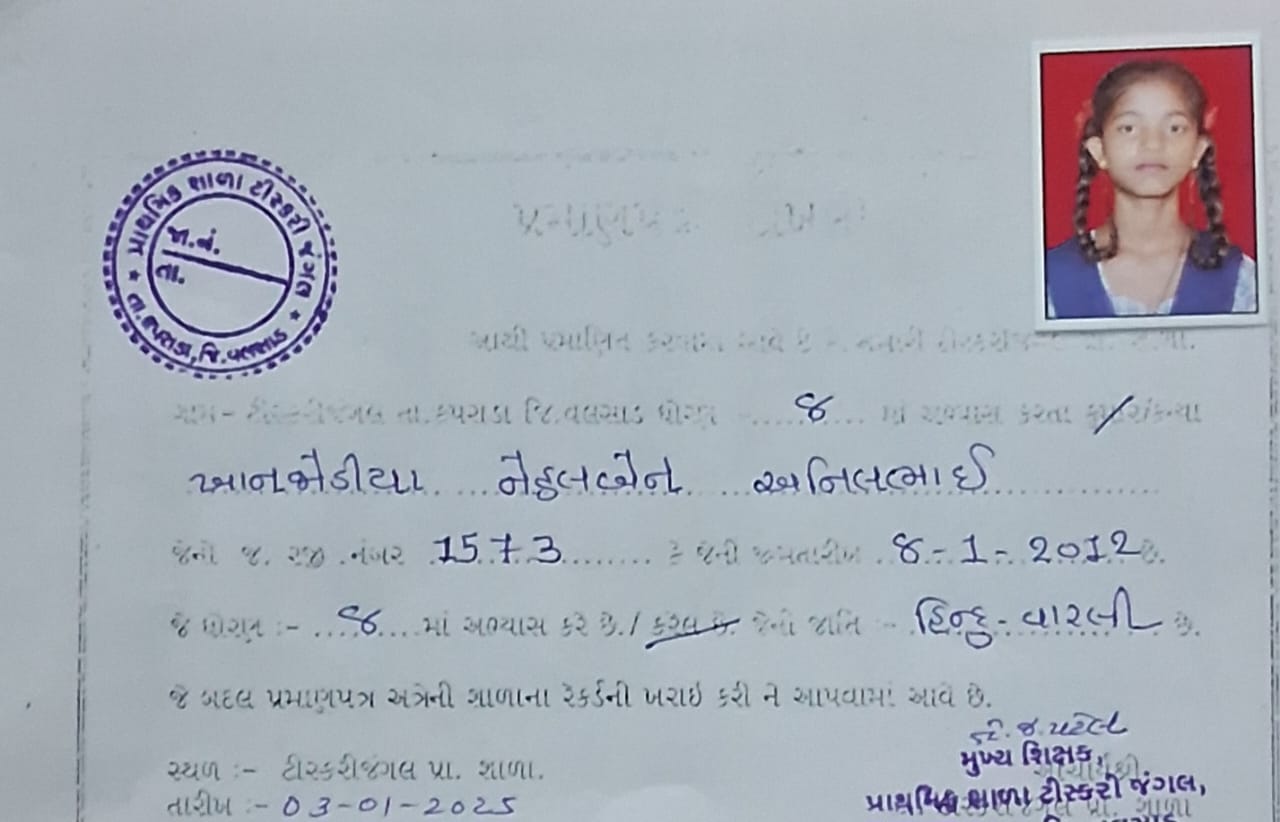 પ્રાથમિક શાળા ટીસ્કરી જંગલ
જા.નં.
તા.
તા.કપરાડા, જિ.વલસાડ
આથી પ્રમાણિત કરવામાં આવે છે કે,
ગામ- ટીસ્કરીજંગલ તા.કપરાડા જિ.વલસાડ ધોરણ -.....૪... માં અભ્યાસ કરતા કુમાર/કન્યા
ખાનજોડીયા નેહલબેન અનિલભાઈ
જેનો જ. રજી .નંબર 1573........ કે જેની જન્મતારીખ ..8-1-2012 છે.
જે ધોરણ :- ....૪.... માં અભ્યાસ કરે છે./ કરેલ છે. જેની જાતિ :- હિન્દુ-વારલી છે.
જે બદલ પ્રમાણપત્ર અત્રેની શાળાના રેકર્ડની ખરાઇ કરી ને આપવામાં આવે છે.
સ્થળ :- ટીસ્કરીજંગલ પ્રા. શાળા.
તારીખ :- 03-01-2025
જ.પટેલ
મુખ્ય શિક્ષક,
આચાર્યશ્રી
પ્રાથમિક શાળા ટીસ્કરી જંગલ,